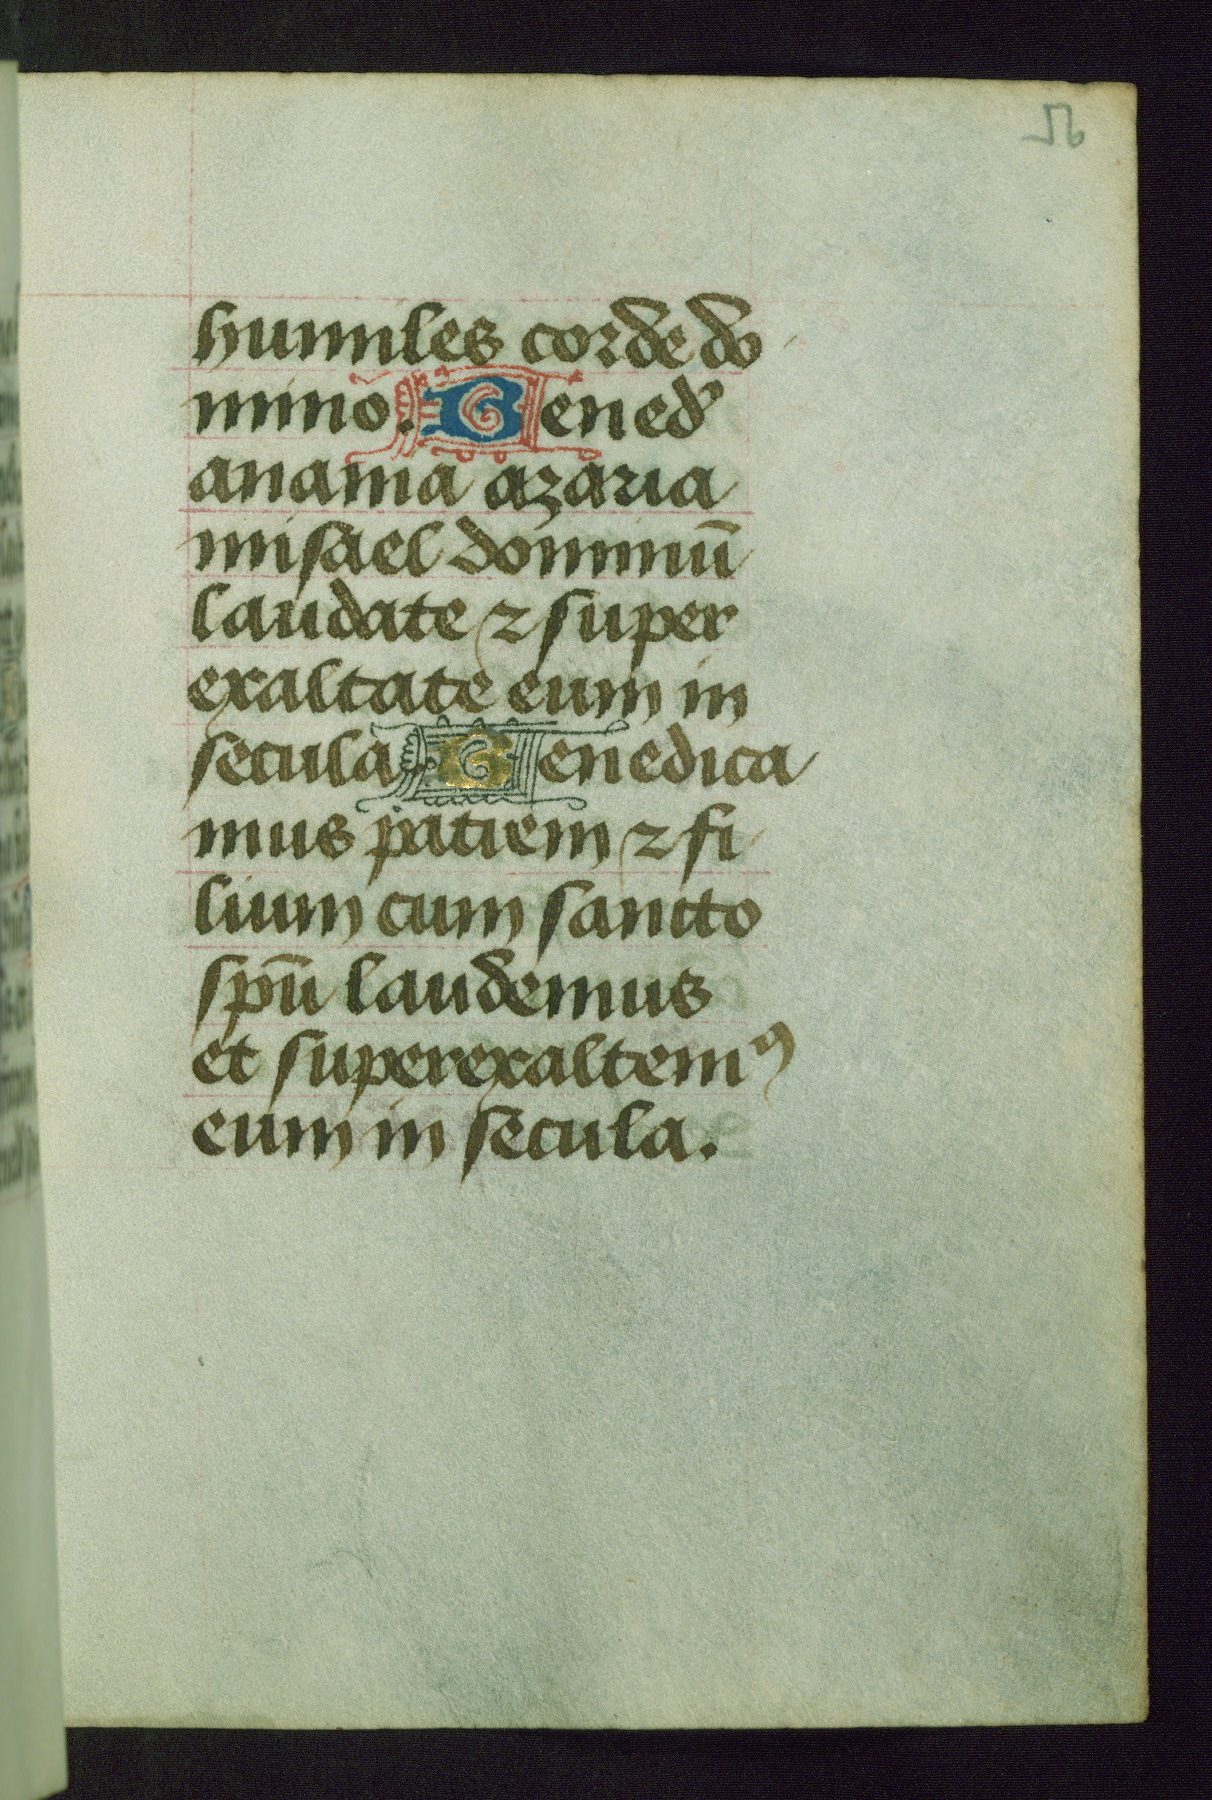 56
humiles corde do
mino. Bened̉
anania azaria
misael dominū
laudate ⁊ super
exaltate eum in
secula. Benedica
mus patrem ⁊ fi
lium cum sancto
spū laudemus
et superexaltemꝰ
eum in secula.